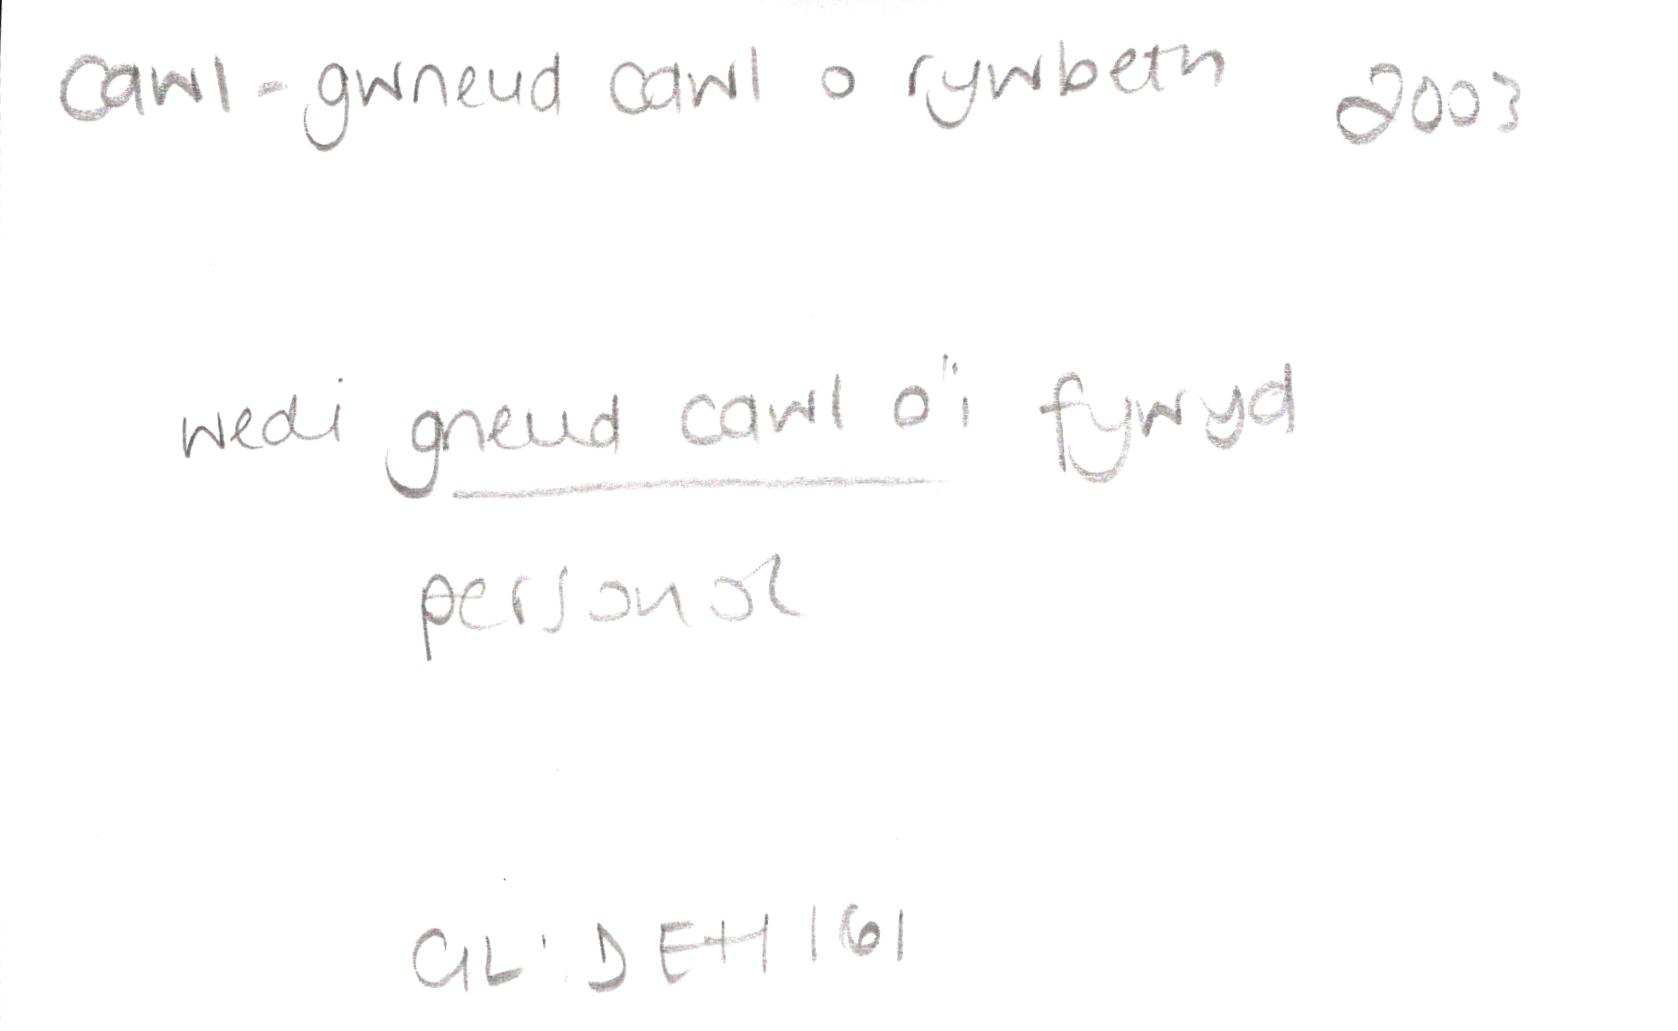 cawl - gwneud cawl o rywbeth 2003
wedi gneud cawl o'i fywyd
personol
GL: DEH 161